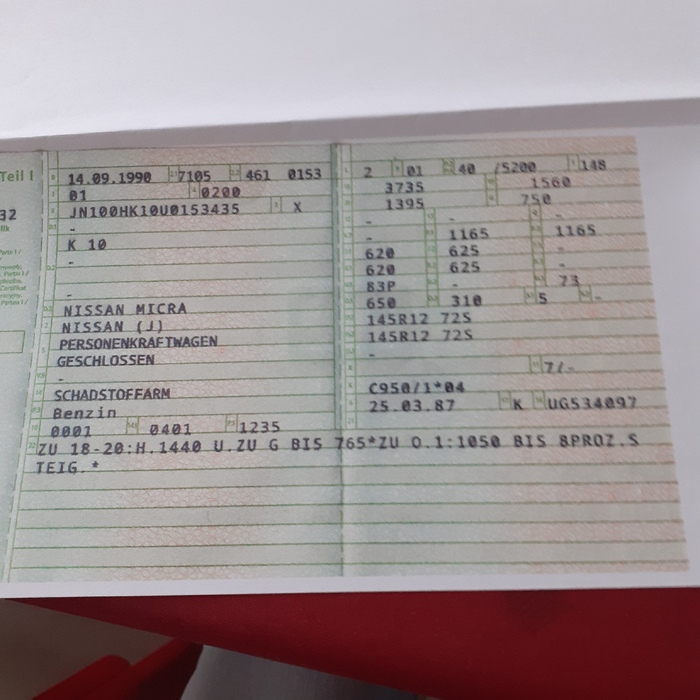 Teil I
14.09.1990 7105 461 0153
01 0200
JN100HK10U0153435 X
-
K 10
-
-
NISSAN MICRA
NISSAN (J)
PERSONENKRAFTWAGEN
GESCHLOSSEN
-
SCHADSTOFFARM
Benzin
0001 0401 1235
32
2 01 40 /5200 148
3735 1560
1395 750
- - -
- 1165 1165
620 625 -
620 625 -
83P - 73
650 310 5 -
145R12 72S
145R12 72S
-
7/-
C950/1*04
25.03.87 K UG534097
ZU 18-20:H.1440 U.ZU G BIS 765*ZU O.1:1050 BIS 8PROZ.S
TEIG.*